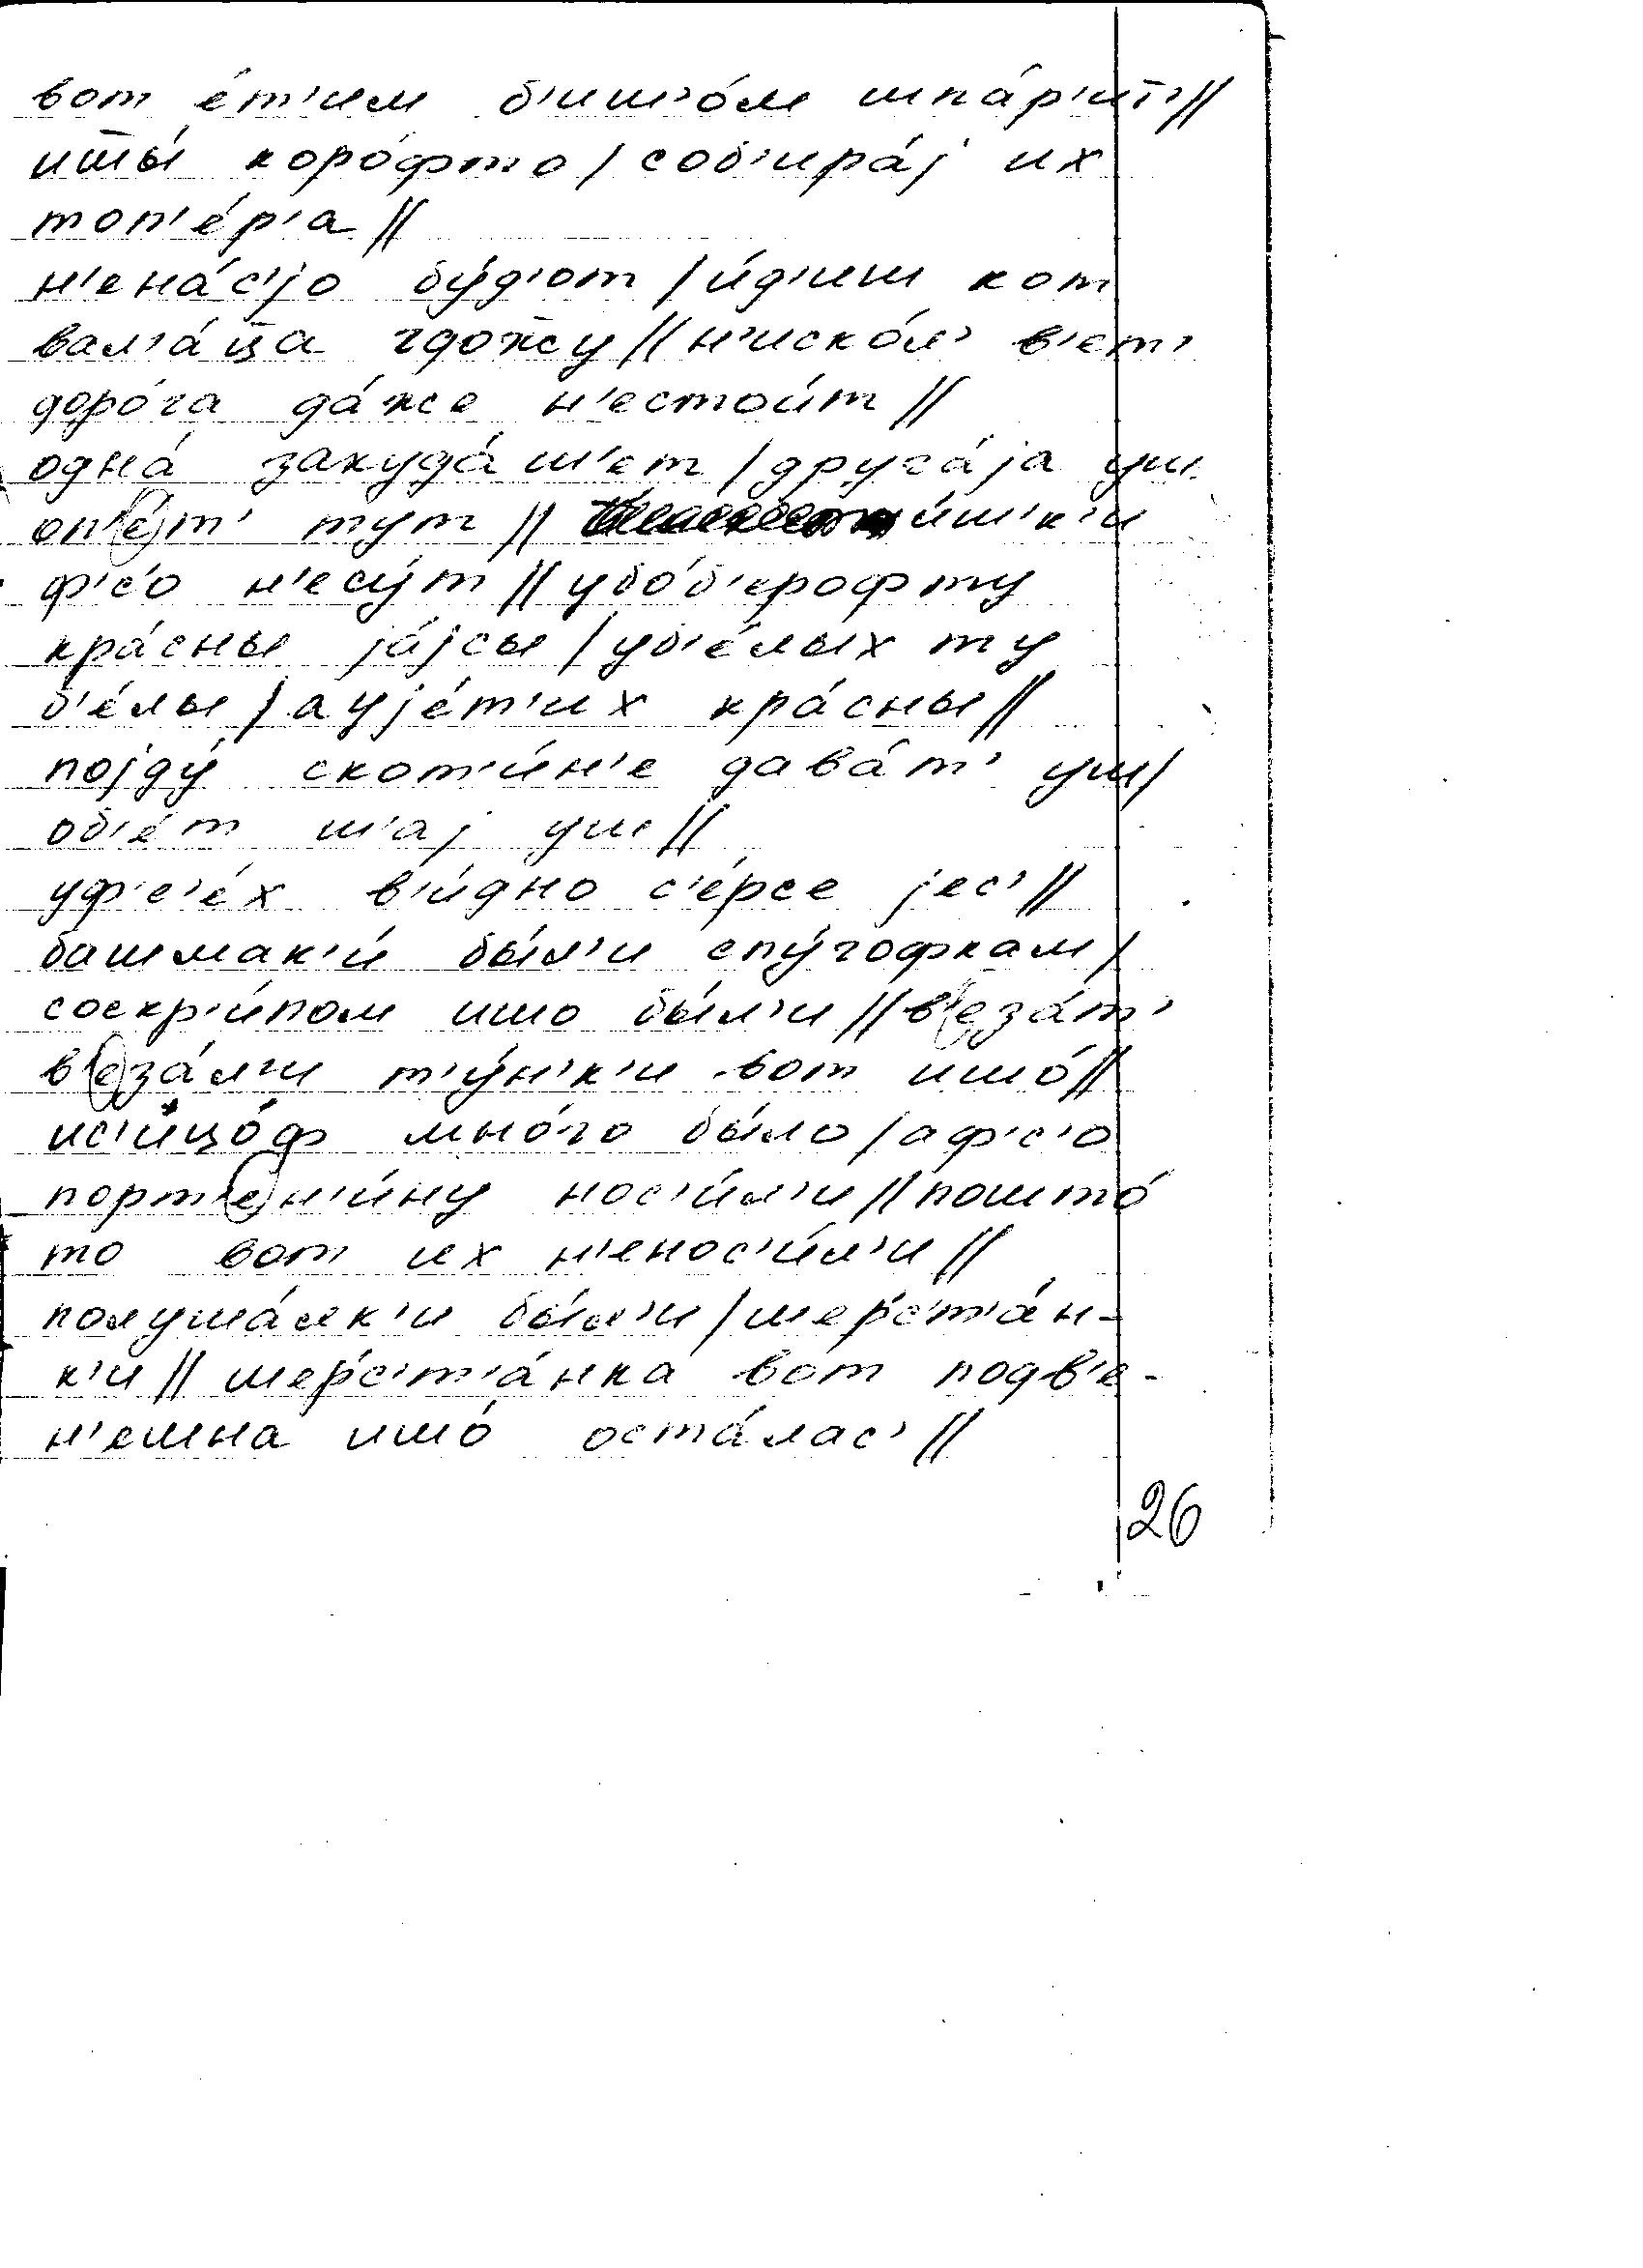 вот е́т'им б'иш'о́м шпа́р'ит̄'//
ит̄ы́ коро́фто/соб'ира́ј их
топ'е́р'а//
н'ена́с'јо бу́д'от/и́д'иш кот
вал'а́ц̄а гдож̄у//н'иско́л' в'ет'
доро́га да́же н'естои́т//
одна́ закуда́ш'ет/друга́ја уш
оп'(е́)т' тут// и́ш'к'и
ф'с'о н'есу́т//убо́б'ерофту
кра́сны ја́јсы/уб'е́лых ту
б'е́лы/аује́т'их кра́сны//
појду́ скот'и́н'е дава́т' уш/
об'е́т ш'ај уш//
уф'с'е́х в'и́дно с'е́рсе јес'//
башмак'и́ бы́л'и спу́гофкам/
соскр'и́пом ишо бы́л'и//в'(е)за́т'
в'(е)за́л'и т'у́н'к'и вот ишо́//
ис'ицо́ф мно́го бы́ло/аф'с'о
порт'(е)н'и́ну нос'и́л'и//пошто́
то вот их н'енос'и́л'и//
полуша́лк'и бы́л'и/шерс'т'а́н-
к'и//шерс'т'а́нка вот подв'е-
н'ешна ишо́ оста́лас'//
26